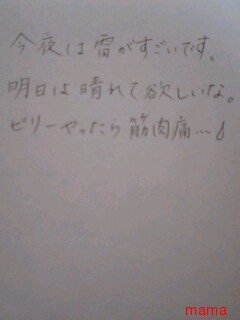 今夜は雷がすごいです。
明日は晴れて欲しいな。
ビリーやったら筋肉痛…
mama